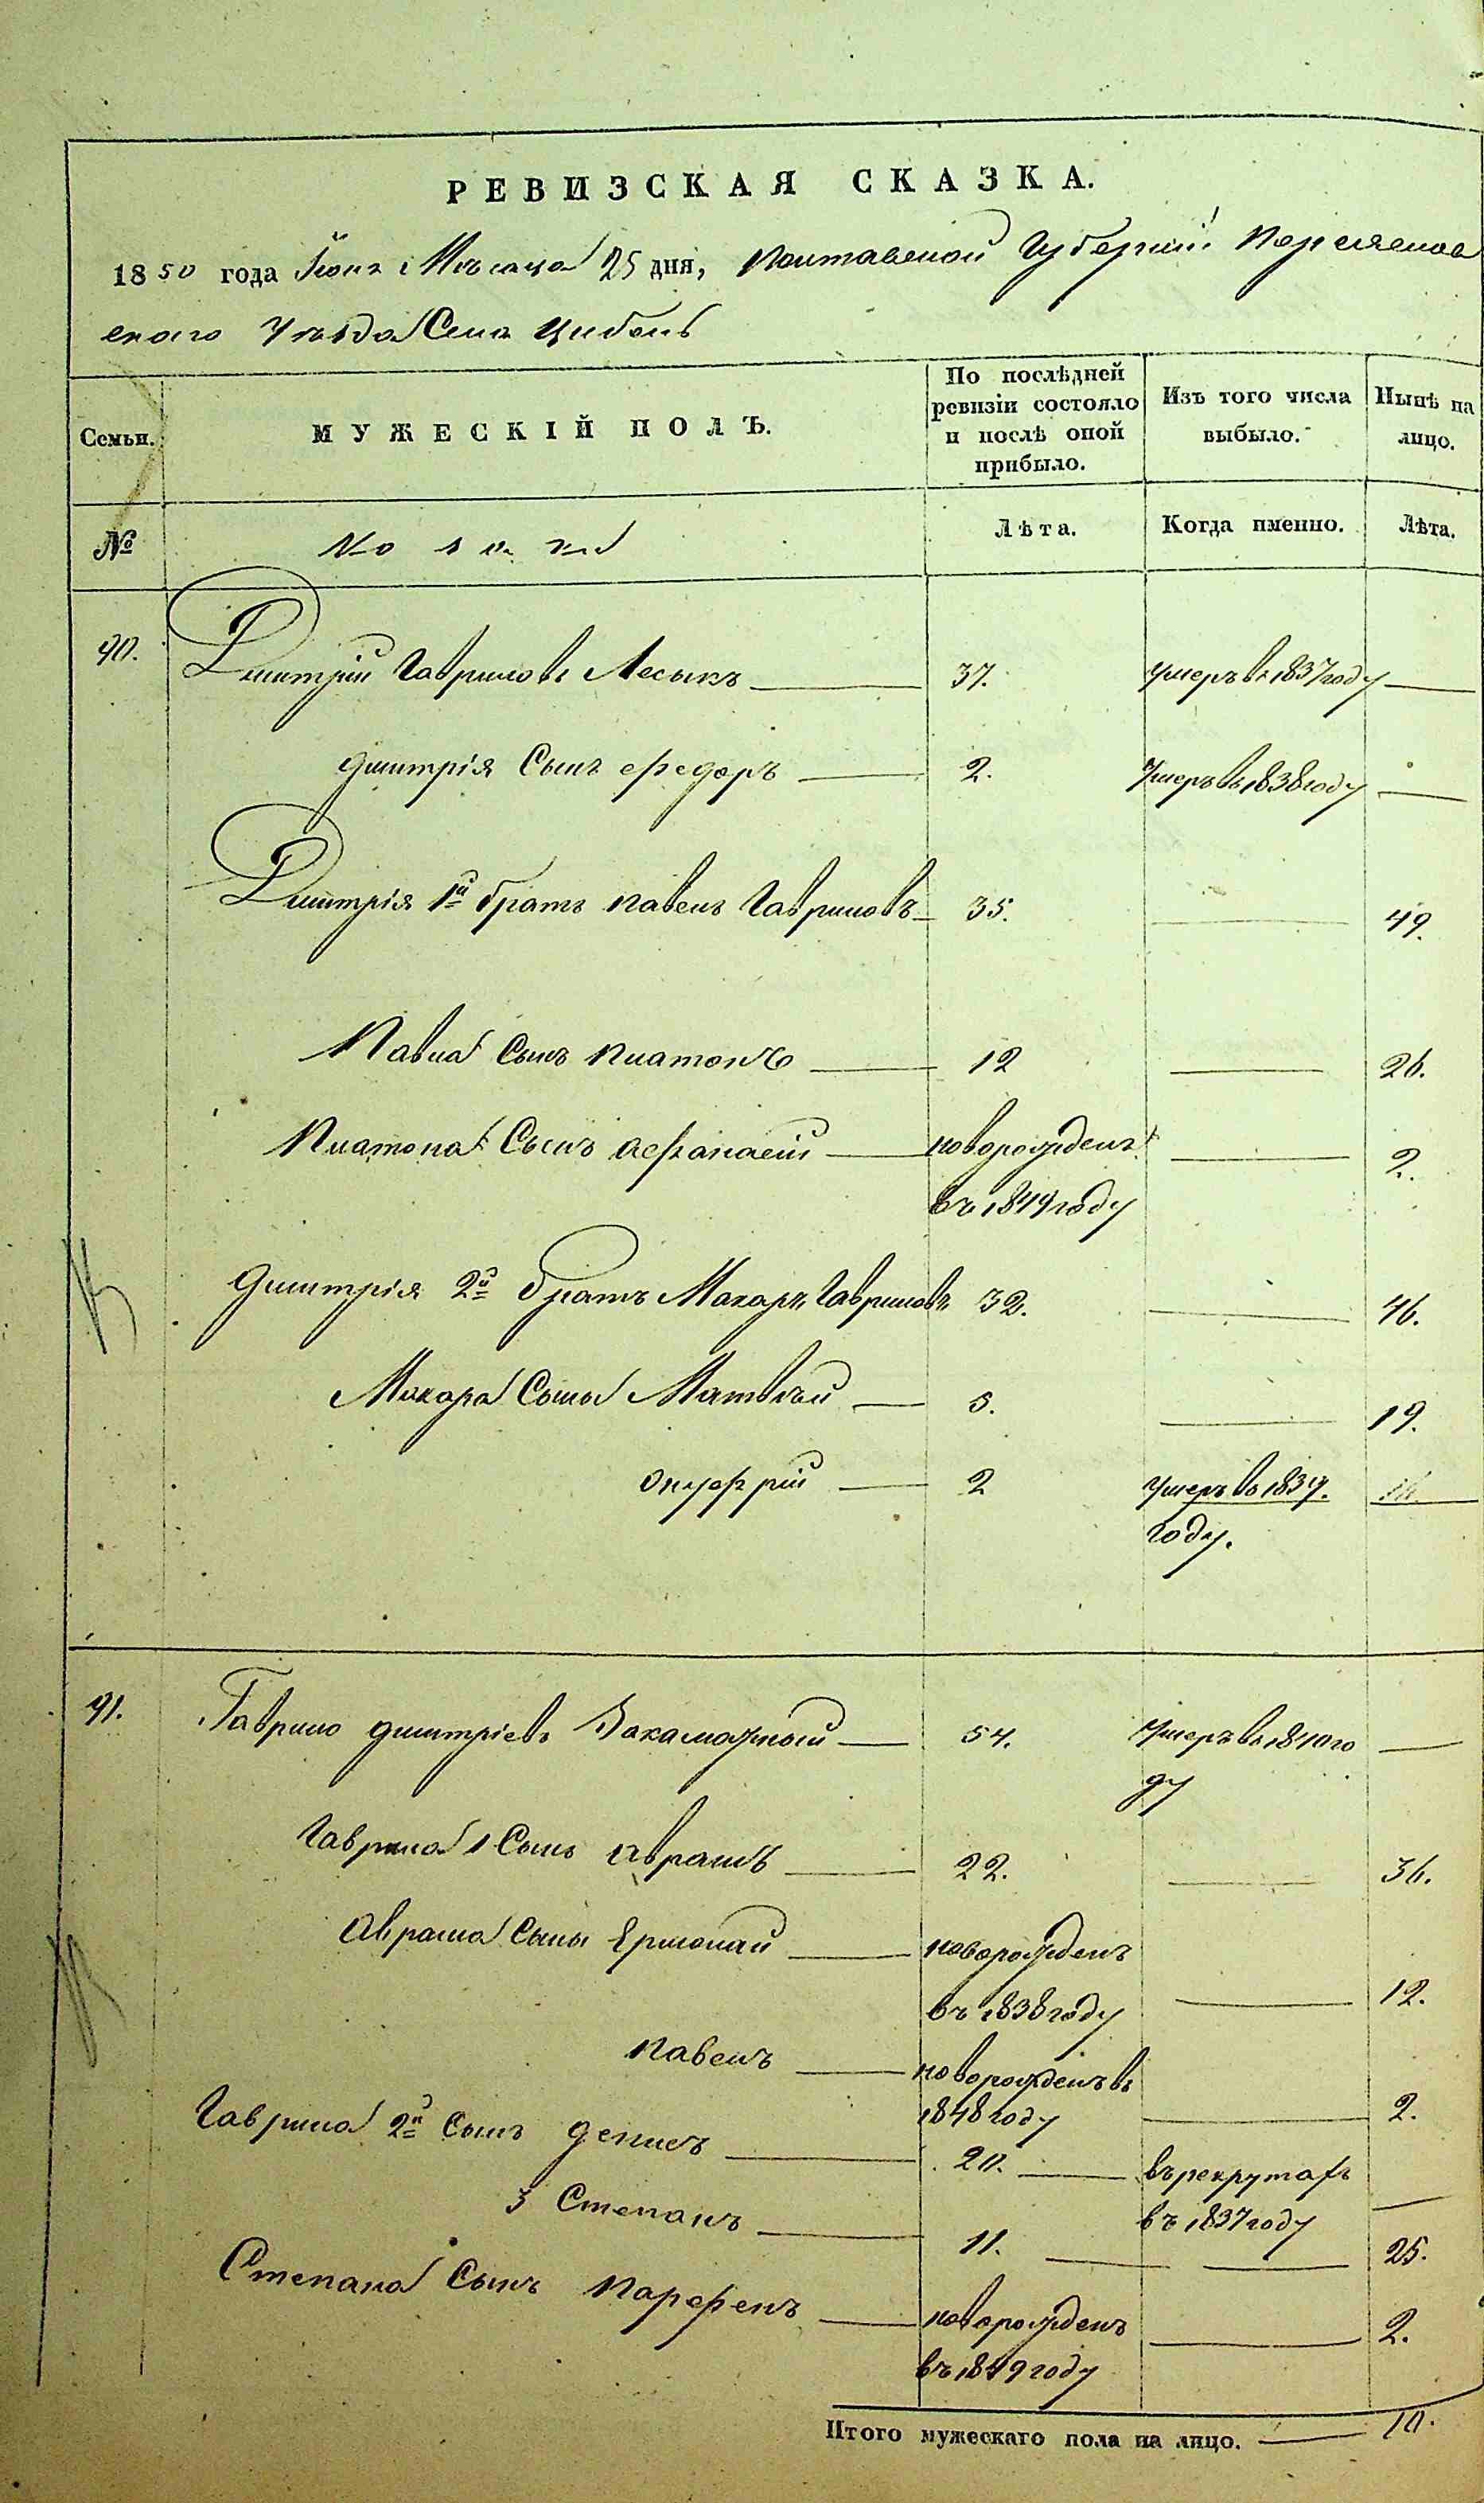 РЕВИЗСКАЯ СКАЗКА.
1850 года Іюня Мѣсяца 25 дня, Полтавской Губерніи Переяслов
скаго Уѣзда Села Цибель
Семьи.
МУЖЕСКІЙ ПОЛЪ.
По послѣдней ревизіи состояло и послѣ оной прибыло.
Изъ того числа выбыло.
Нынѣ на лицо.
№
Лѣта.
Когда именно.
Лѣта.
40. Дмитрій Гавриловъ Лесыкъ 37. умеръ въ 1837 году
Дмитрія Сынъ Федоръ 2. Умеръ въ 1838 году
Дмитрія 1й братъ Павелъ Гавриловъ 35. 49.
Павла Сынъ Платонъ 12 26.
Платона Сынъ Афанасій новорожденъ 2.
въ 1849 году
Дмитрія 2й братъ Макаръ Гавриловъ 32. 46.
Макара Сыны Матвѣй 5. 19.
Онуфрій 2 умеръ въ 1839.
году.
41. Гаврило Дмитріевъ Закаложный 54. Умеръ въ 1840 го
ду
Гаврила 1 Сынъ Аврамъ 22. 36.
Аврама Сыны Ермолай новорожденъ
въ 1838 году 12.
Павелъ новорожденъ въ
1848 году 2.
Гаврила 2й Сынъ Денисъ 20. въ рекрутахъ
въ 1837 году
3 Степанъ 11. 25.
Степана Сынъ Парфенъ новорожденъ 2.
въ 1849 году
Итого мужескаго пола на лицо. 10.